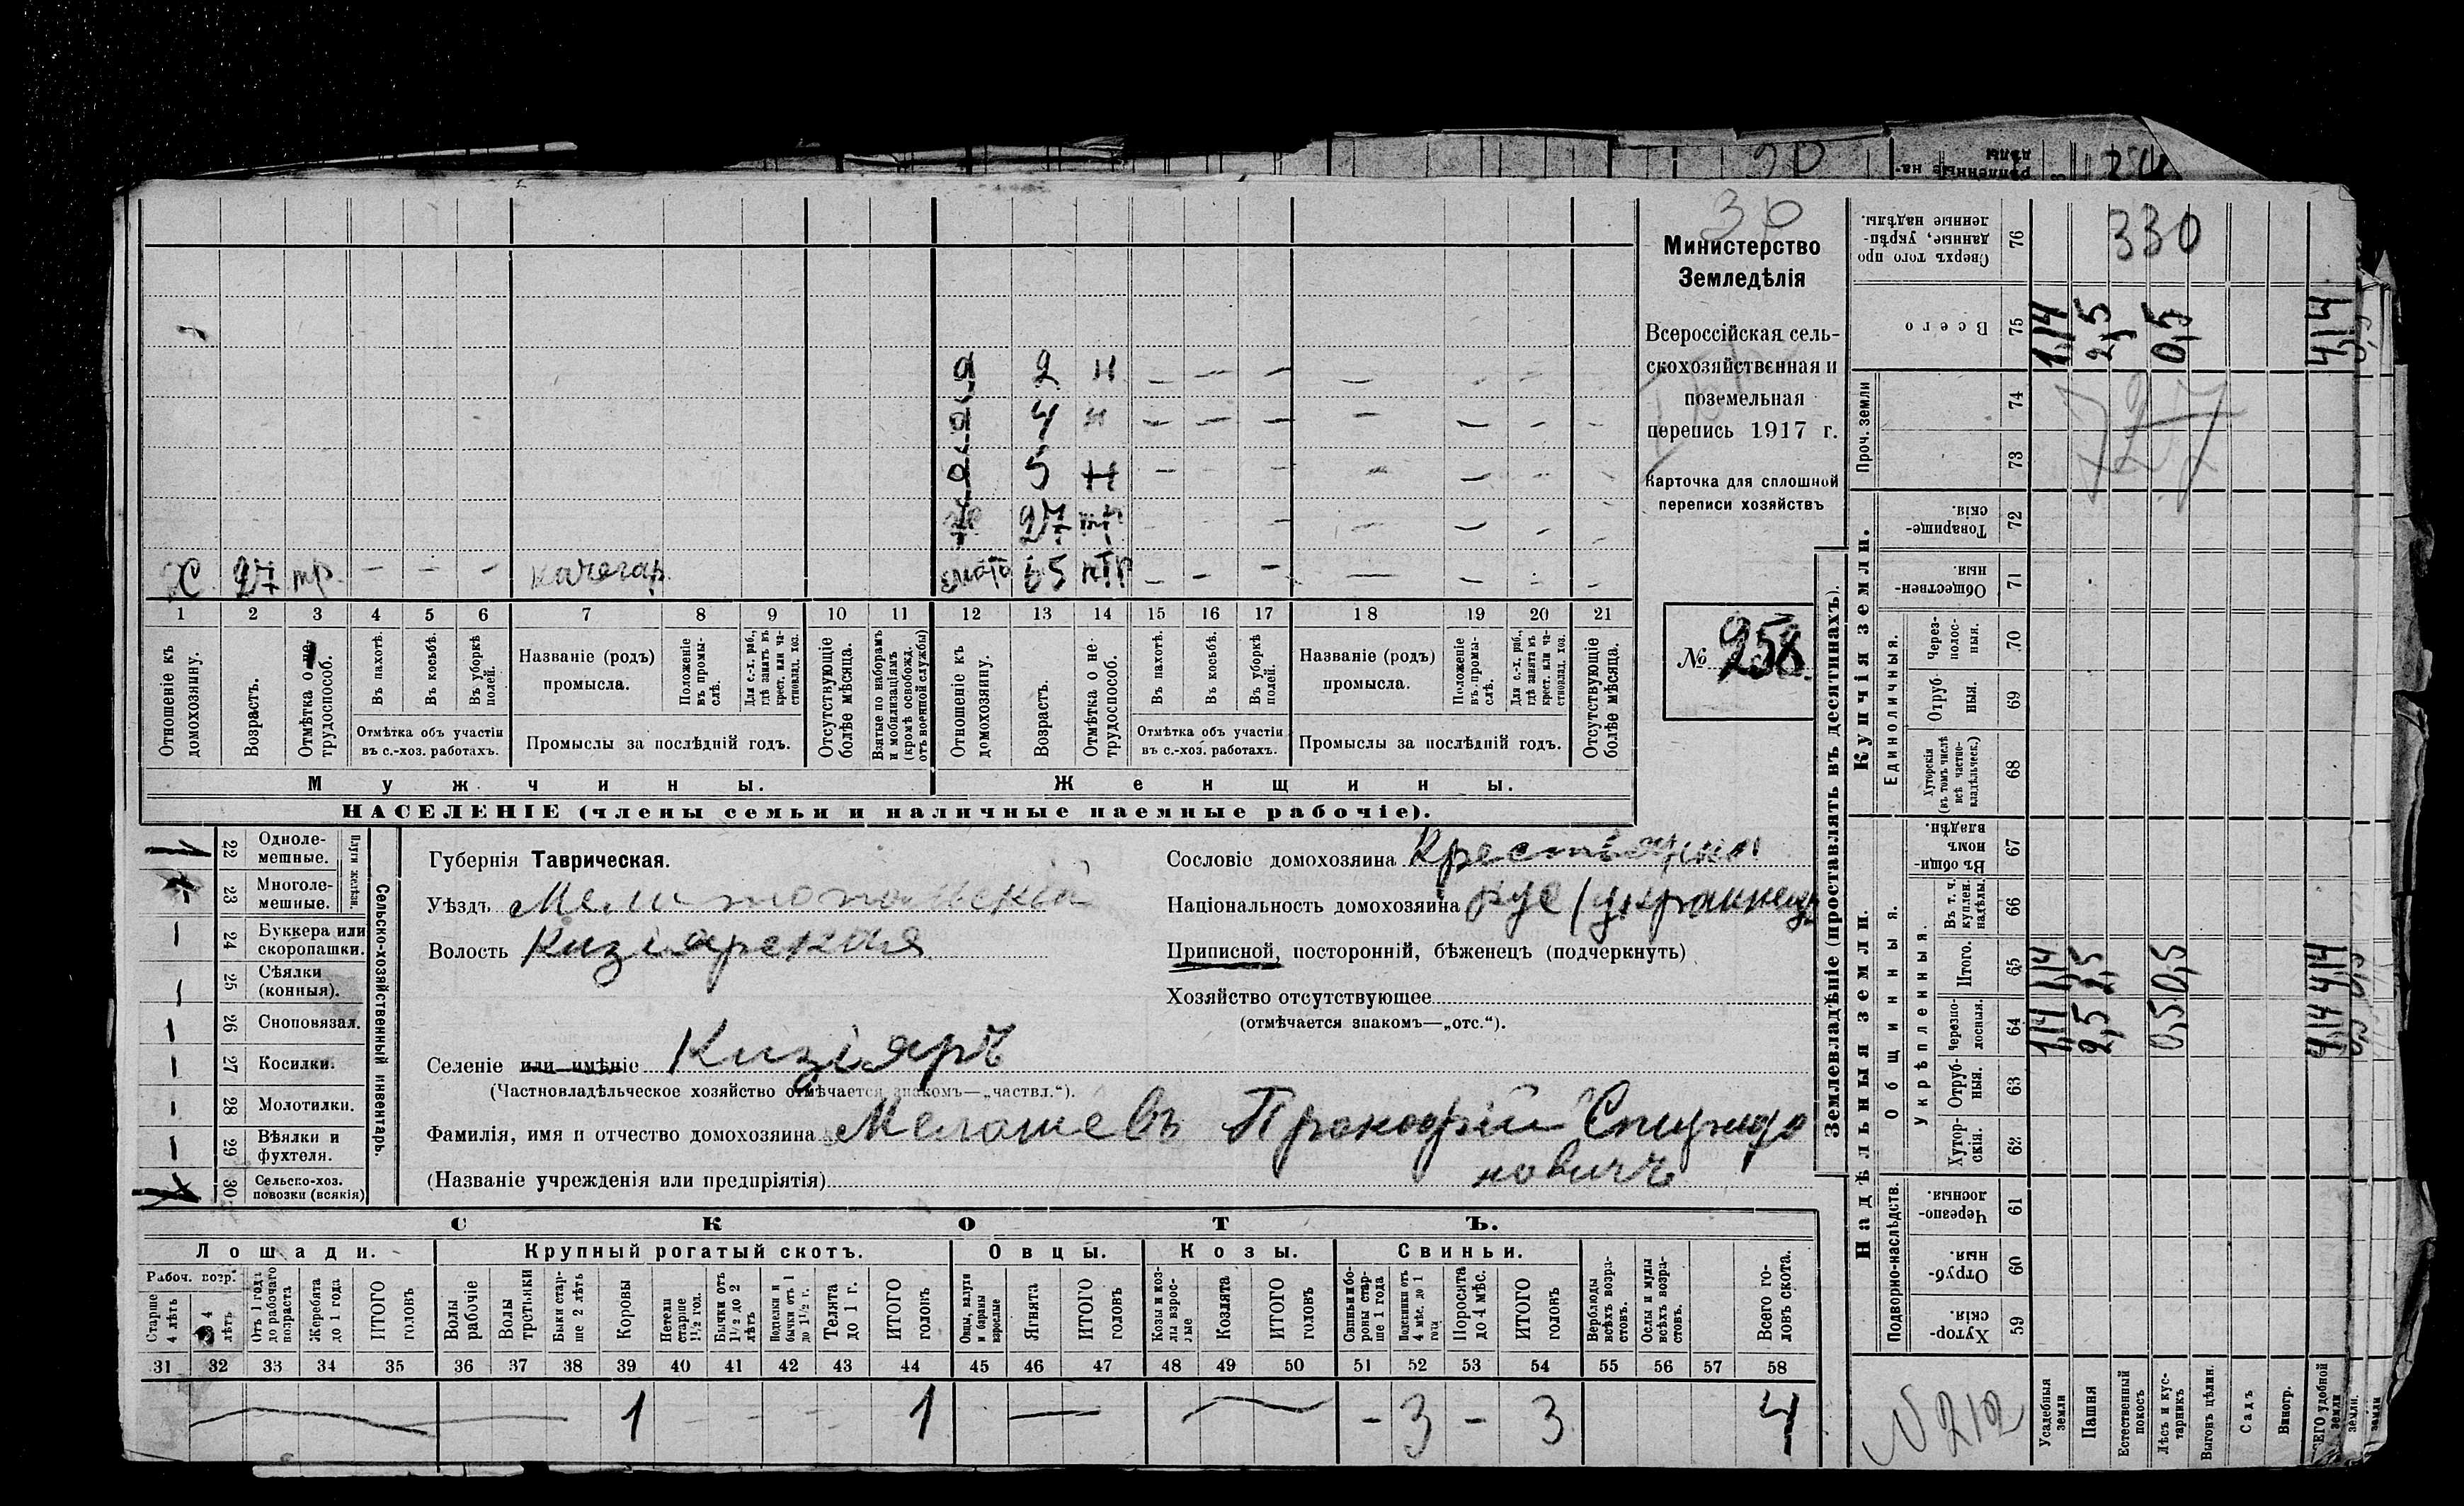 30
Министерство
Земледѣлія
Всероссійская сель-
скохозяйственная и
поземельная
перепись 1917 г.
Карточка для сплошной
переписи хозяйствъ
№ 258
д 2 н — — — — — — —
д 4 н — — — — — — —
д 5 н — — — — — — —
ж 27 тр — — — — — — —
мать 65 нтр — — — — — — —
Х 27 тр. — — — кочегар.
1 2 3 4 5 6 7 8 9 10 11 12 13 14 15 16 17 18 19 20 21
Отношеніе къ домохозяину.
Возрастъ.
Отмѣтка о не-трудоспособ.
Въ пахотѣ.
Въ косьбѣ.
Въ уборкѣ полей.
Отмѣтка объ участіи
въ с.-хоз. работахъ.
Названіе (родъ)
промысла.
Положеніе въ промы-слѣ.
Для с.-х. раб., гдѣ занятъ въ крест. или ча-стновлад. хоз.
Промыслы за послѣдній годъ.
Отсутствующіе болѣе мѣсяца.
Взятые по наборамъ и мобилизаціямъ (кромѣ освобожд. отъ военной службы)
Отношеніе къ домохозяину.
Возрастъ.
Отмѣтка о не-трудоспособ.
Въ пахотѣ.
Въ косьбѣ.
Въ уборкѣ полей.
Отмѣтка объ участіи
въ с.-хоз. работахъ.
Названіе (родъ)
промысла.
Положеніе въ промы-слѣ.
Для с.-х. раб., гдѣ занятъ въ крест. или ча-стновлад. хоз.
Промыслы за послѣдній годъ.
Отсутствующіе болѣе мѣсяца.
Мужчины.
Женщины.
НАСЕЛЕНІЕ (члены семьи и наличные наемные рабочіе).
Сельско-хозяйственный инвентарь.
Плуги желѣзн.
22 Одноле-мешные. 1
23 Многоле-мешные.
24 Буккера или скоропашки. —
25 Сѣялки (конныя). —
26 Сноповязал. —
27 Косилки. —
28 Молотилки. —
29 Вѣялки и фухтеля. —
30 Сельско-хоз. повозки (всякія)
Губернія Таврическая.
Уѣздъ Мелитопольскій
Волость Кизіярская
Селеніе или имѣніе Кизіяръ
(Частновладѣльческое хозяйство отмѣчается знакомъ—„частвл.“).
Фамилія, имя и отчество домохозяина Мелашевъ Прокофій Спиридо
новичъ
(Названіе учрежденія или предпріятія)
Сословіе домохозяина Крестьянин
Національность домохозяина рус (украинецъ
Приписной, посторонній, бѣженецъ (подчеркнуть)
Хозяйство отсутствующее
(отмѣчается знакомъ—„отс.“).
СКОТЪ.
Лошади.
Крупный рогатый скотъ.
Овцы.
Козы.
Свиньи.
Рабоч. возр.
Старше 4 лѣтъ
4 лѣтъ
Отъ 1 года до рабочаго возраста
Жеребята до 1 года
ИТОГО головъ
Волы рабочіе
Волы третьяки
Быки стар-ше 2 лѣтъ
Коровы
Нетели старше 1½ год.
Бычки отъ 1½ до 2 лѣтъ
Подтелки и бычки отъ 1 до 1½ г.
Телята до 1 г.
ИТОГО головъ
Овцы, валухи и бараны взрослые
Ягнята
ИТОГО головъ
Козы и коз-лы взрос-лые
Козлята
ИТОГО головъ
Свиньи и бо-ровы стар-ше 1 года
Подсвинки отъ 4 мѣс. до 1 года
Поросята до 4 мѣс.
ИТОГО головъ
Верблюды всѣхъ возра-стовъ.
Ослы и мулы всѣхъ возра-стовъ.
Всего го-ловъ скота.
31 32 33 34 35 36 37 38 39 40 41 42 43 44 45 46 47 48 49 50 51 52 53 54 55 56 57 58
— 1 — — — 1 — — — 3 — 3 4
Землевладѣніе (проставлять въ десятинахъ).
Надѣльныя земли.
Купчія земли.
Проч. земли
Подворно-наслѣдств.
Общинныя.
Укрѣпленныя.
Единоличныя.
Сверхъ того про данные, укрѣп-ленные надѣлы. 76
330
Всего 75 1,14 2,5 0,5 4,14
74
73
727
Товарище-скія. 72
Обществен-ныя. 71
Через-полос-ныя. 70
Отруб-ныя. 69
Хуторскія (въ томъ числѣ всѣ частно-владѣльческ.) 68
Въ общин-номъ владѣн. 67
Въ т. ч. куплен. надѣлы. 66
Итого. 65 1,14 2,5 0,5 4,14
Черезпо-лосныя. 64 1,14 2,5 0,5 4,14
Отруб-ныя. 63
Хутор-скія. 62
Черезпо-лосныя. 61
Отруб-ныя. 60
Хутор-скія. 59
N 212
Усадебныя земли
Пашня
Естественный покосъ
Лѣсъ и кус-тарникъ
Выгонъ цѣлин.
Садъ
Виногр.
удобной земли